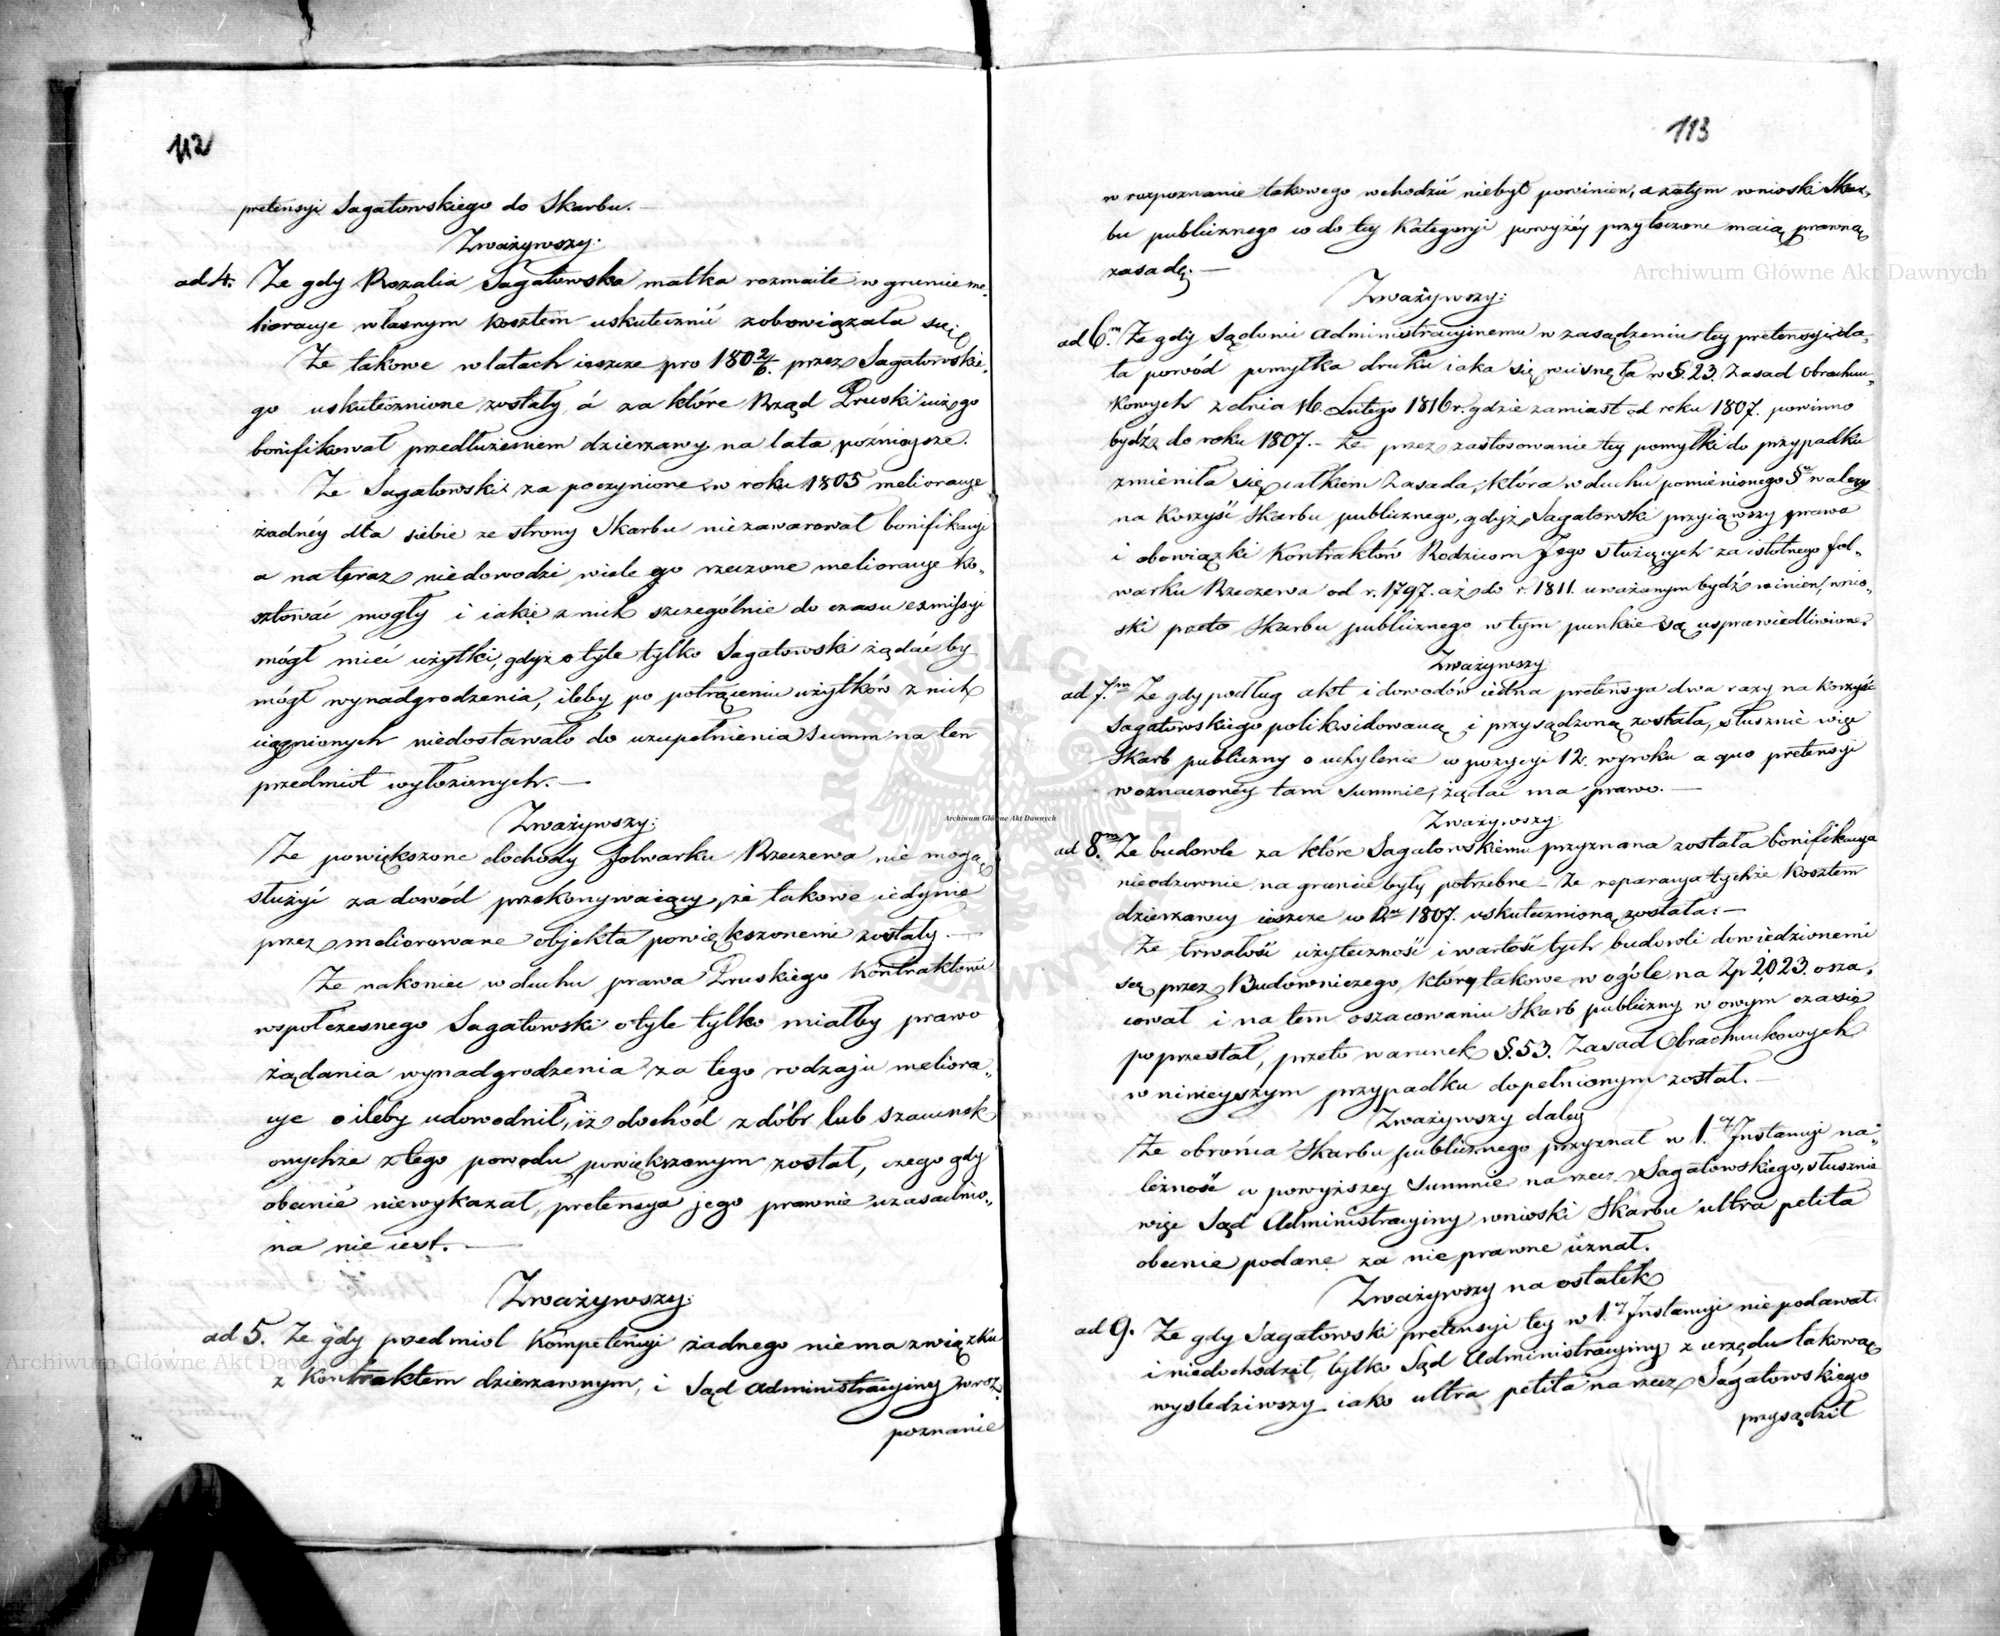 112
pretensyi Sagatowskiego do Skarbu. —
Zważywszy:
ad 4. Że gdy Rozalia Sagatowska matka rozmaite w gruncie me-
lioracye własnym kosztem uskutecznić zobowiązała się;
Że takowe w latach ieszcze pro 180 2/6. przez Sagatowskie-
go uskutecznione zostały, á za które Rząd Pruski iuż go
bonifikował przedłużeniem dzierzawy na lata poźnieysze.
Że Sagatowski za poczynione w roku 1805 melioracye
żadnéy dla siebie ze strony Skarbu niezawarował bonifikacyi
a na teraz niedowodzi, wiele go rzeczone melioracye ko-
sztować mogły i iakie z nich szczególnie do czasu exmissyi
mógł mieć użytki, gdyż o tyle tylko Sagatowski żądać by
mógł wynadgrodzenia, ileby po potrąceniu użytków z nich
ciągnionych niedostawało do uzupełnienia Summ na ten
przedmiot wyłożonych. —
Zważywszy:
Że powiększone dochody folwarku Rzeczewa nie mogą
służyć za dowód przekonywaiący, że takowe iedynie
przez meliorowane objekta powiększonemi zostały. —
Że nakoniec w duchu prawa Pruskiego Kontraktowi
wspołczesnego Sagatowski o tyle tylko miałby prawo
żądania wynadgrodzenia za tego rodzaju meliora-
cye o ileby udowodnił, iż dochód z dóbr lub szacunek
onychże z tego powodu powiększonym został, czego gdy
obecnie niewykazał, pretensya jego prawnie uzasadnio-
na nie iest. —
Zważywszy:
ad 5. Że gdy przedmiot Kompetencyi żadnego niema związku
z Kontraktem dzierzawnym, i Sąd Administracyiny w roz-
poznanie
113
w rozpoznanie takowego wchodzić niebył powinien, a zatym wnioski Skar-
bu publicznego co do tey Kategoryi powyżéy przytoczone maią prawną
zasadę. —
Zważywszy:
ad 6.m Że gdy Sądowi Administracyinemu w zasądzeniu tey pretensyi da-
ła powód pomyłka druku iaka się wcisnęła w §. 23. Zasad Obrachun-
kowych z dnia 16 Lutego 1816 r. gdzie zamiast od roku 1807. powinno
bydź do roku 1807. – Że przez zastosowanie tey pomyłki do przypadku
zmieniła się całkiem Zasada, która w duchu pomienionego § walczy
na korzyść Skarbu publicznego, gdyż Sagatowski przyiąwszy prawa
i obowiązki Kontraktów Rodzicom Jego służących za istotnego fol-
warku Rzeczewa od r. 1797. aż do r. 1811. uważanym bydź winien, wnio-
ski przeto Skarbu publicznego w tym punkcie są usprawiedliwione.
Zważywszy
ad 7.m Że gdy podług akt i dowodów iedna pretensya dwa razy na korzyść
Sagatowskiego polikwidowaną i przysądzoną została, słusznie więc
Skarb publiczny o uchylenie w pozycyi 12. wyroku a quo pretensyi
w oznaczonéy tam Summie, żądać ma prawo. —
Zważywszy:
ad 8.m Że budowle za które Sagatowskiemu przyznana została bonifikacya
nieodzownie na gruncie były potrzebne – Że reparacya tychże kosztem
dzierzawcy ieszcze w Ru 1807. uskutecznioną została: —
Że trwałość użyteczność i wartość tych budowli dowiedzionemi
są przez Budowniczego, który takowe w ogóle na Zp 2023. osza-
cował i na tem oszacowaniu Skarb publiczny w owym czasie
poprzestał, przeto warunek §. 53. Zasad Obrachunkowych
w ninieyszym przypadku dopełnionym został. —
Zważywszy daley
Że obrońca Skarbu publicznego przyznał w 1.ey Instancyi na-
leżność w powyższey Summie na rzecz Sagatowskiego, słusznie
więc Sąd Administracyiny wnioski Skarbu ultra petita
obecnie podane za nie prawne uznał.
Zważywszy na ostatek
ad 9. Że gdy Sagatowski pretensyi tey w 1.ey Instancyi nie podawał
i niedochodził, tylko Sąd Administracyiny z urzędu takową
wyśledziwszy iako ultra petita na rzecz Sagatowskiego
przysądził
Archiwum Główne Akt Dawnych
Archiwum Główne Akt Dawnych
Archiwum Główne Akt Dawnych
ARCHIWUM GŁÓWNE AKT DAWNYCH